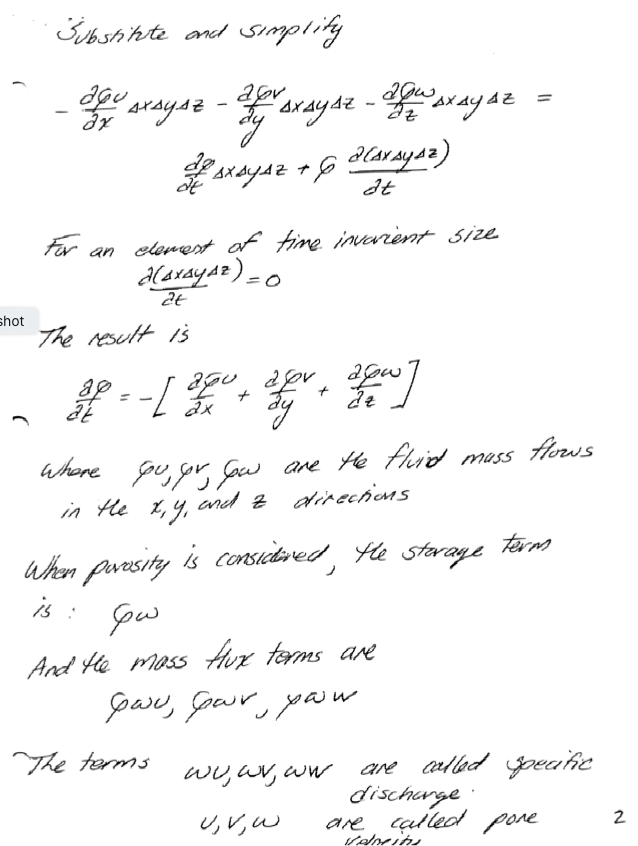 Substitute and simplify
- ∂ρu/∂x ΔxΔyΔz - ∂ρv/∂y ΔxΔyΔz - ∂ρw/∂z ΔxΔyΔz =
∂ρ/∂t ΔxΔyΔz + ρ ∂(ΔxΔyΔz)/∂t
For an element of time invarient size
∂(ΔxΔyΔz)/∂t = 0
shot
The result is
∂ρ/∂t = -[ ∂ρu/∂x + ∂ρv/∂y + ∂ρw/∂z ]
Where ρu, ρv, ρw are the fluid mass flows
in the x, y, and z directions
When porosity is considered, the storage term
is : ρω
And the mass flux terms are
ρωu, ρωv, ρωw
The terms ωu, ωv, ωw are called specific
discharge.
u, v, w are called pore
velocity
2